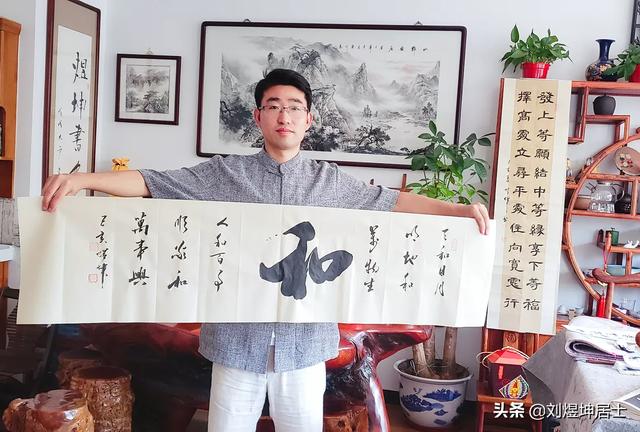 天和日月
明地和
萬物生
和
人和百事
順家和
萬事興
己亥
煜坤書
發上等願結中等緣享下等福
擇高處立尋平處住向寬處行
头条 @刘煜坤居士